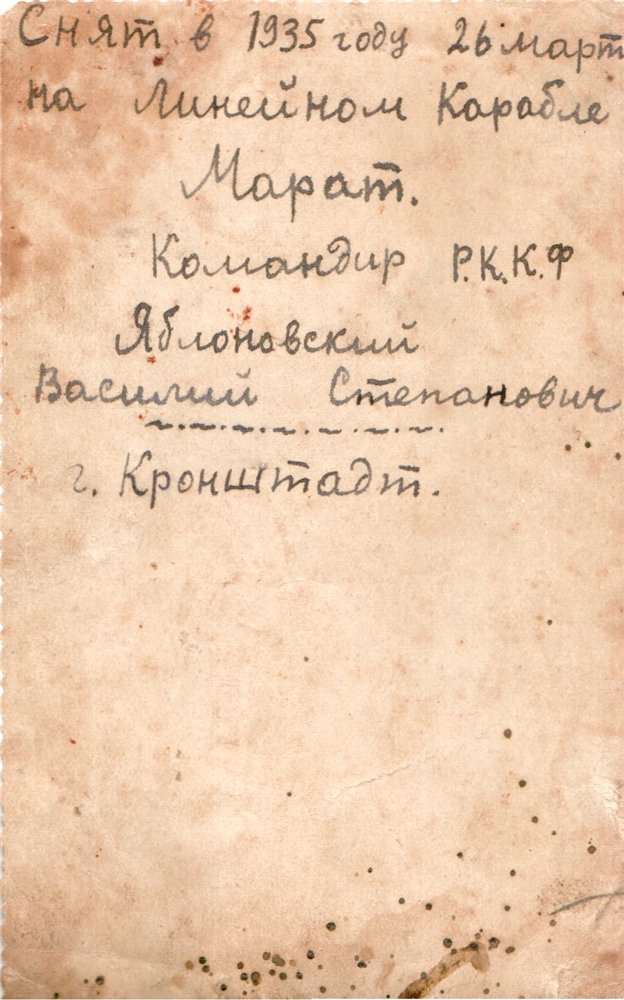 Снят в 1935 году 26 март
на Линейном Карабле
Марат.
Командир Р.К.К.Ф
Яблоновский
Василий Степанович
г. Кронштадт.